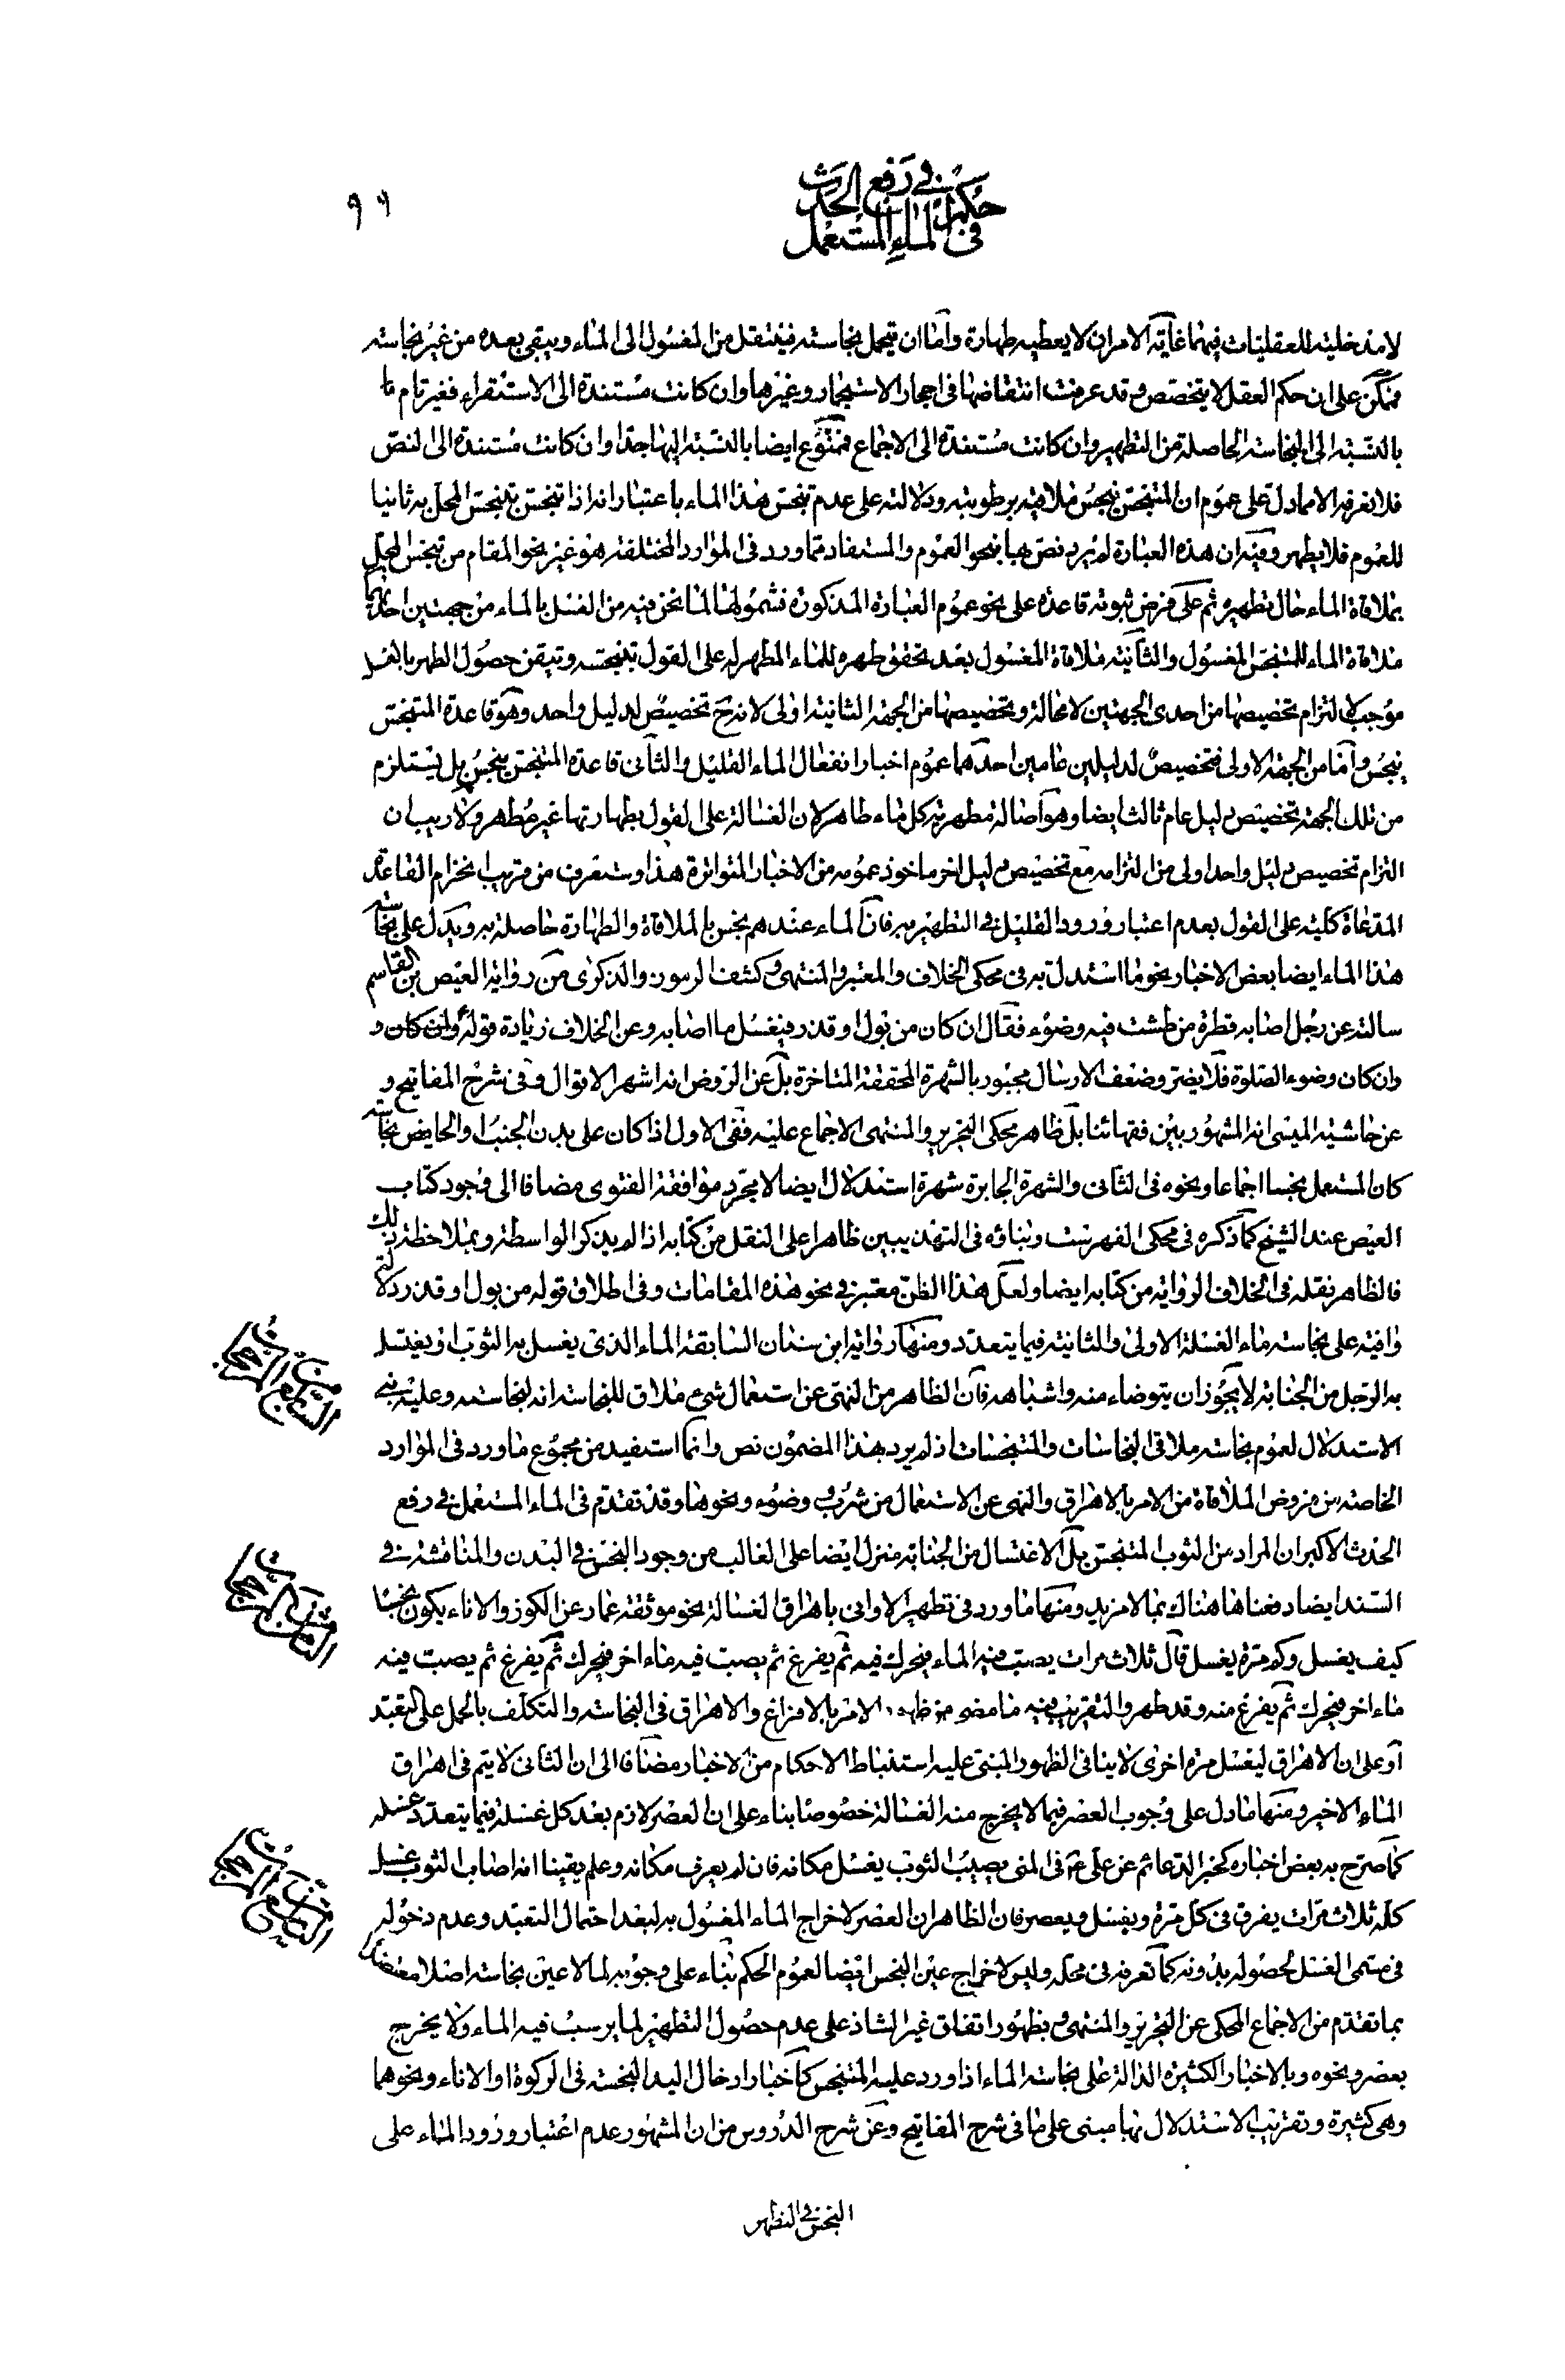 حكم
في الماء المستعمل في رفع الحدث
٩٩
لا مدخلية للعقليات فيهما غاية الامر ان لا يعطيه طهارة واما ان يتحمل نجاسته فينتقل من المغسول الى الماء ويبقى بعده من غير نجاسته
فتمكن على ان حكم العقل لا يتخصص وقد عرفت انتقاضها فى احجار الاستجمار وغيرها وان كانت مستندة الى الاستقراء فغير تام
بالنسبة الى النجاسة الحاصلة من التطهير وان كانت مستندة الى الاجماع فممنوع ايضا بالنسبة اليها جدا وان كانت مستندة الى النص
فلا نعرفه الا ما دل على عموم ان المتنجس ينجس ملاقيه برطوبته ودلالته على عدم تنجس هذا الماء باعتبار انه اذا تنجس تنجس المحل به ثانيا
للعموم فلا يطهر وفيه ان هذه العبارة لم يرد نص بها بنحو العموم والمستفاد مما ورد فى الموارد المختلفة هو غير نحو المقام من تنجس المحل
بملاقاة الماء حال تطهيره ثم على فرض ثبوته قاعدة على نحو عموم العبارة المذكورة نشمولها لما نحن فيه من الغسل بالماء من جهتين احداهما
ملاقاة الماء للمتنجس المغسول والثانية ملاقاة المغسول بعد تحقق طهره للماء المطهر له على القول بتنجسه وتيقن حصول الطهر بالغسل
موجب لالتزام تخصيصها من احدى الجهتين لا محالة وتخصيصها من الجهة الثانية اولى لانه ح تخصيص لدليل واحد وهو قاعدة المتنجس
ينجس واما من الجهة الاولى فتخصيص لدليلين عامين احدهما عموم اخبار انفعال الماء القليل والثانى قاعدة المتنجس ينجس بل يستلزم
من تلك الجهة تخصيص دليل عام ثالث ايضا وهو اصالة مطهرية كل ماء طاهر لان الغسالة على القول بطهارتها غير مطهر ولا ريب ان
التزام تخصيص دليل واحد اولى من التزامه مع تخصيص دليل اخر ماخوذ عمومه من الاخبار المتواترة هذا وستعرف من قريب انخرام القاعدة
المدعاة كلية على القول بعدم اعتبار ورود القليل فى التطهير به فان الماء عندهم ينجس بالملاقاة والطهارة حاصلة به ويدل على نجاسة
هذا الماء ايضا بعض الاخبار نحو ما استدل به فى محكى الخلاف والمعتبر والمنتهى وكشف الرموز والذكرى من رواية العيص بن القاسم
سالته عن رجل اصابه قطرة من طشت فيه وضوء فقال ان كان من بول او قذر فيغسل ما اصابه وعن الخلاف زيادة قوله وان كان و
وان كان وضوء الصلوة فلا يضر وضعف الارسال مجبور بالشهرة المحققة المتاخرة بل عن الروض انه اشهر الاقوال وفى شرح المفاتيح و
عن حاشية الميسى انه المشهور بين فقهائنا بل ظاهر محكى التحرير والمنتهى الاجماع عليه ففى الاول اذا كان على بدن الجنب او الحايض نجاسة
كان المستعمل نجسا اجماعا ونحوه فى الثانى والشهرة الجابرة شهرة استدلال ايضا لا مجرد موافقة الفتوى مضافا الى وجود كتاب
العيص عند الشيخ كما ذكره فى محكى الفهرست وبناؤه فى التهذيبين ظاهرا على النقل من كتابه اذا لم يذكر الواسطة وبملاحظة ذلك
فالظاهر نقله فى الخلاف الرواية من كتابه ايضا ولعل هذا الظن معتبر فى نحو هذه المقامات وفى اطلاق قوله من بول او قذر دلالة
وافية على نجاسة ماء الغسلة الاولى والثانية فيما يتعدد ومنها رواية ابن سنان السابقة الماء الذى يغسل به الثوب او يغتسل
به الرجل من الجنابة لا يجوز ان يتوضاء منه واشباهه فان الظاهر من النهى عن استعمال شىء ملاق للنجاسة انه لنجاسته وعليه بنى
الاستدلال لعموم نجاسة ملاقى النجاسات والمتنجسات اذ لم يرد بهذا المضمون نص وانما استفيد من مجموع ما ورد فى الموارد
الخاصة من فروض الملاقاة من الامر بالاهراق والنهى عن الاستعمال من شرب وضوء ونحوها وقد تقدم فى الماء المستعمل فى رفع
الحدث الاكبر ان المراد من الثوب المتنجس بل الاغتسال من الجنابة منزل ايضا على الغالب من وجود النجس فى البدن والمناقشة فى
السند ايضا دفعناها هناك بما لا مزيد ومنها ما ورد فى تطهير الاوانى باهراق الغسالة نحو موثقة عمار عن الكوز والاناء يكون نجسا
كيف يغسل وكم مرة يغسل قال ثلاث مرات يصب فيه الماء فيحرك فيه ثم يفرغ ثم يصب فيه ماء اخر فيحرك ثم يفرغ ثم يصب فيه
ماء اخر فيحرك ثم يفرغ منه وقد طهر والتقريب فيه ما مضى من ظهور الامر بالافراغ والاهراق فى النجاسة والتكلف بالحمل على التعبد
او على ان الاهراق لغسل مرة اخرى لا ينافى الظهور المبنى عليه استنباط الاحكام من الاخبار مضافا الى ان الثانى لا يتم فى اهراق
الماء الاخير ومنها ما دل على وجوب العصر فيما لا يخرج منه الغسالة خصوصا بناء على ان العصر لازم بعد كل غسلة فيما يتعدد غسله
كما صرح به بعض اخباره كخبر الدعائم عن على ع فى المنى يصيب الثوب يغسل مكانه فان لم يعرف مكانه وعلم يقينا انه اصاب الثوب غسل
كله ثلاث مرات يفرق فى كل مرة ويغسل ويعصر فان الظاهر ان العصر لاخراج الماء المغسول به لبعد احتمال التعبد وعدم دخوله
فى مسمى الغسل لحصوله بدونه كما تعرفه فى محله وليس لاخراج عين النجس ايضا لعموم الحكم بناء على وجوبه لما لا عين نجاسة اصلا معتضدا
بما تقدم من الاجماع المحكى عن التحرير والمنتهى وبظهور اتفاق غير الشاذ على عدم حصول التطهير لما يرسب فيه الماء ولا يخرج
بعصر ونحوه وبالاخبار الكثيرة الدالة على نجاسة الماء اذا ورد عليه المتنجس كاخبار ادخال اليد النجسة فى الركوة او الاناء ونحوهما
وهى كثيرة وتقريب الاستدلال بها مبنى على ما فى شرح المفاتيح وعن شرح الدروس من ان المشهور عدم اعتبار ورود الماء على
النجس فى التطهير